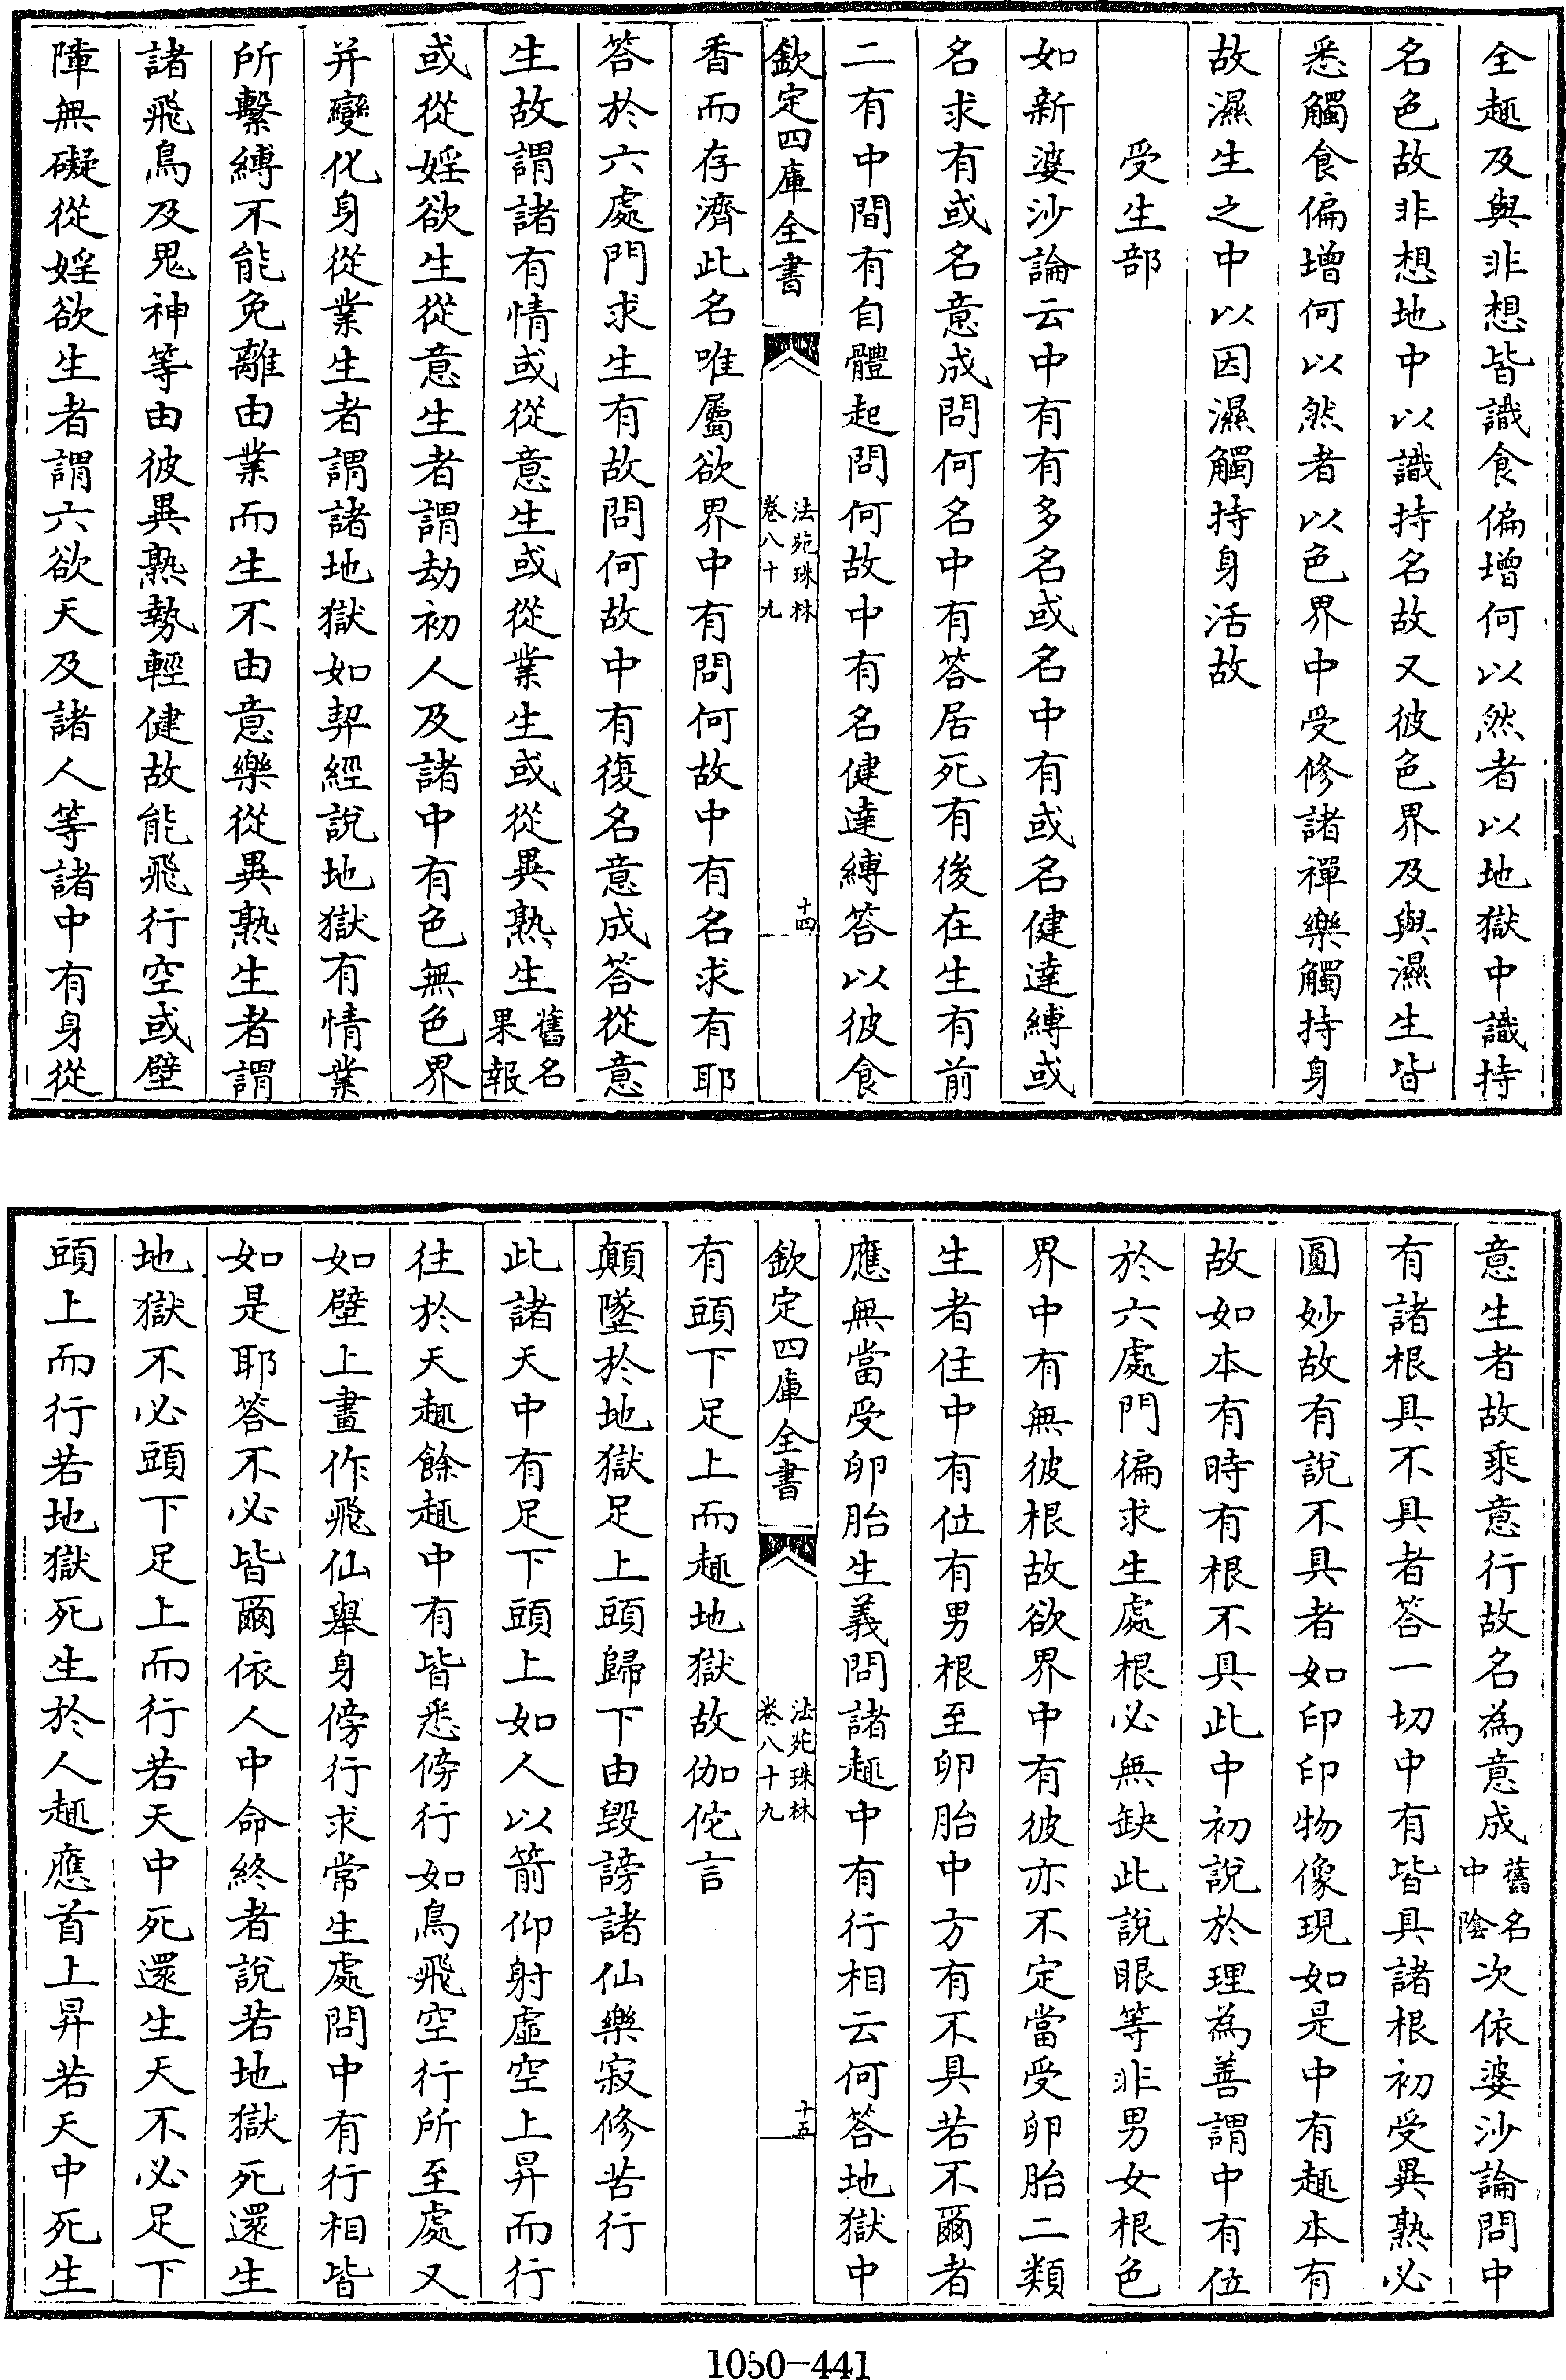 全趣及與非想皆識食偏增何以然者以地獄中識持
名色故非想地中以識持名故又彼色界及與濕生皆
悉觸食偏增何以然者以色界中受修諸禪樂觸持身
故濕生之中以因濕觸持身活故
受生部
如新婆沙論云中有有多名或名中有或名健達縛或
名求有或名意成問何名中有答居死有後在生有前
二有中間有自體起問何故中有名健達縛答以彼食
欽定四庫全書
法苑珠林
卷八十九
十四
香而存濟此名唯屬欲界中有問何故中有名求有耶
答於六處門求生有故問何故中有復名意成答從意
生故謂諸有情或從意生或從業生或從異熟生舊名果報
或從婬欲生從意生者謂劫初人及諸中有色無色界
并變化身從業生者謂諸地獄如契經說地獄有情業
所繫縛不能免離由業而生不由意樂從異熟生者謂
諸飛鳥及鬼神等由彼異熟勢輕健故能飛行空或壁
障無礙從婬欲生者謂六欲天及諸人等諸中有身從
意生者故乘意行故名為意成舊名中陰次依婆沙論問中
有諸根具不具者答一切中有皆具諸根初受異熟必
圓妙故有說不具者如印印物像現如是中有趣本有
故如本有時有根不具此中初說於理為善謂中有位
於六處門徧求生處根必無缺此說眼等非男女根色
界中有無彼根故欲界中有彼亦不定當受卵胎二類
生者住中有位有男根至卵胎中方有不具若不爾者
應無當受卵胎生義問諸趣中有行相云何答地獄中
欽定四庫全書
法苑珠林
卷八十九
十五
有頭下足上而趣地獄故伽佗言
顛墜於地獄足上頭歸下由毀謗諸仙樂寂修苦行
此諸天中有足下頭上如人以箭仰射虛空上昇而行
往於天趣餘趣中有皆悉傍行如鳥飛空行所至處又
如壁上畫作飛仙舉身傍行求常生處問中有行相皆
如是耶答不必皆爾依人中命終者說若地獄死還生
地獄不必頭下足上而行若天中死還生天不必足下
頭上而行若地獄死生於人趣應首上昇若天中死生
1050-441